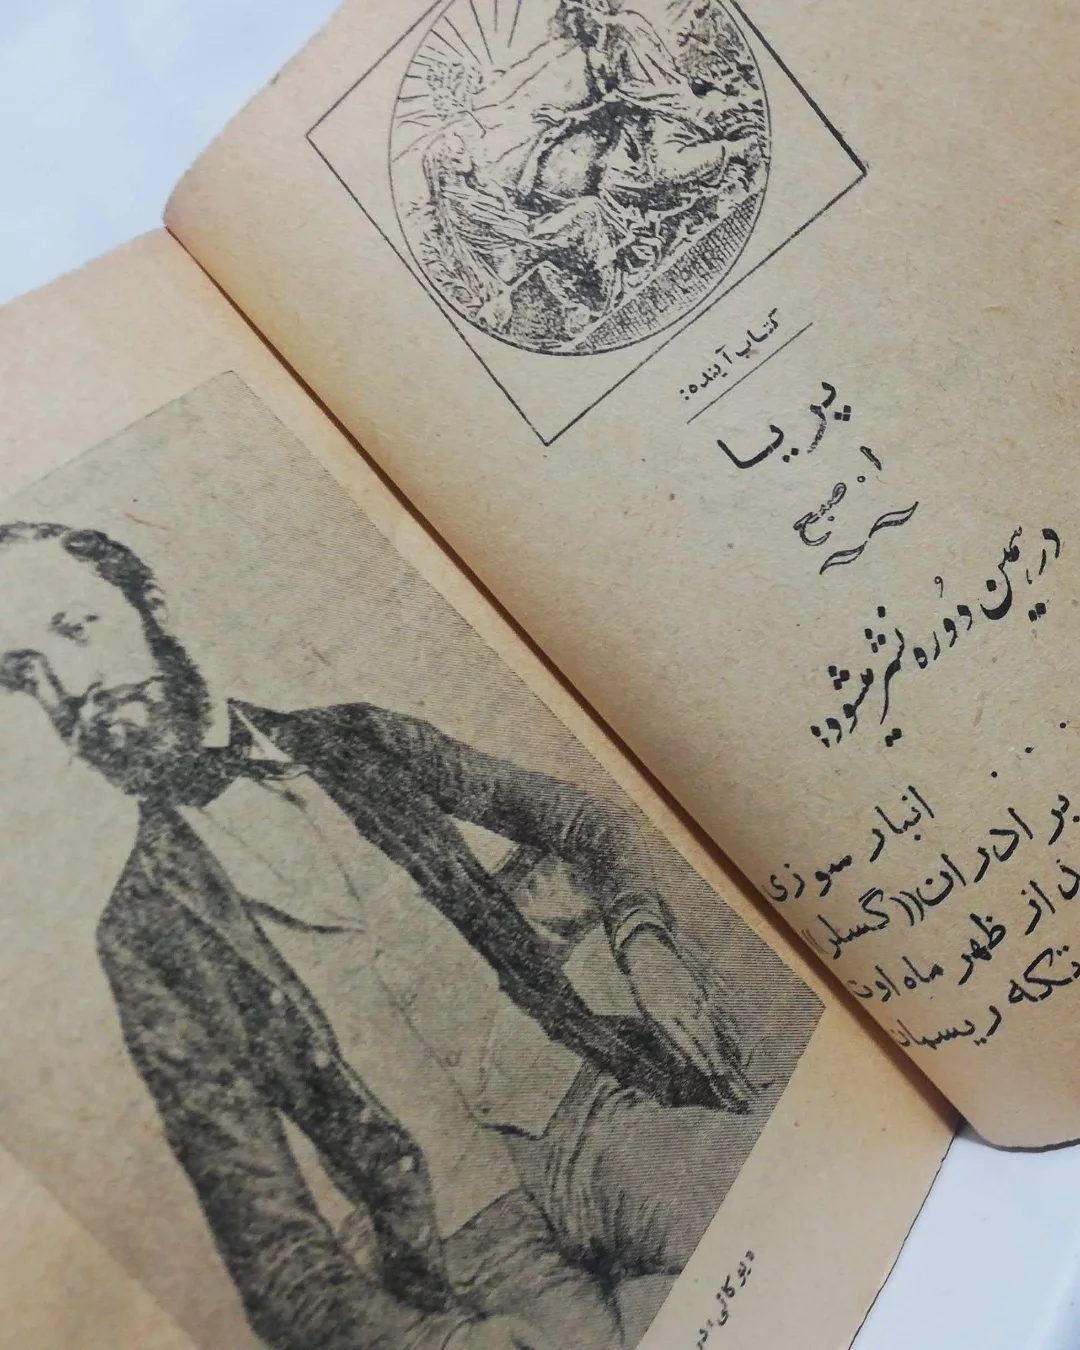 کتاب آینده:
پریا
ا. صبح
در همین دوره نشر میشود:
انبار سوزی
برادران ((گسلر))
از ظهر ماه اوت
تکه ریسمان